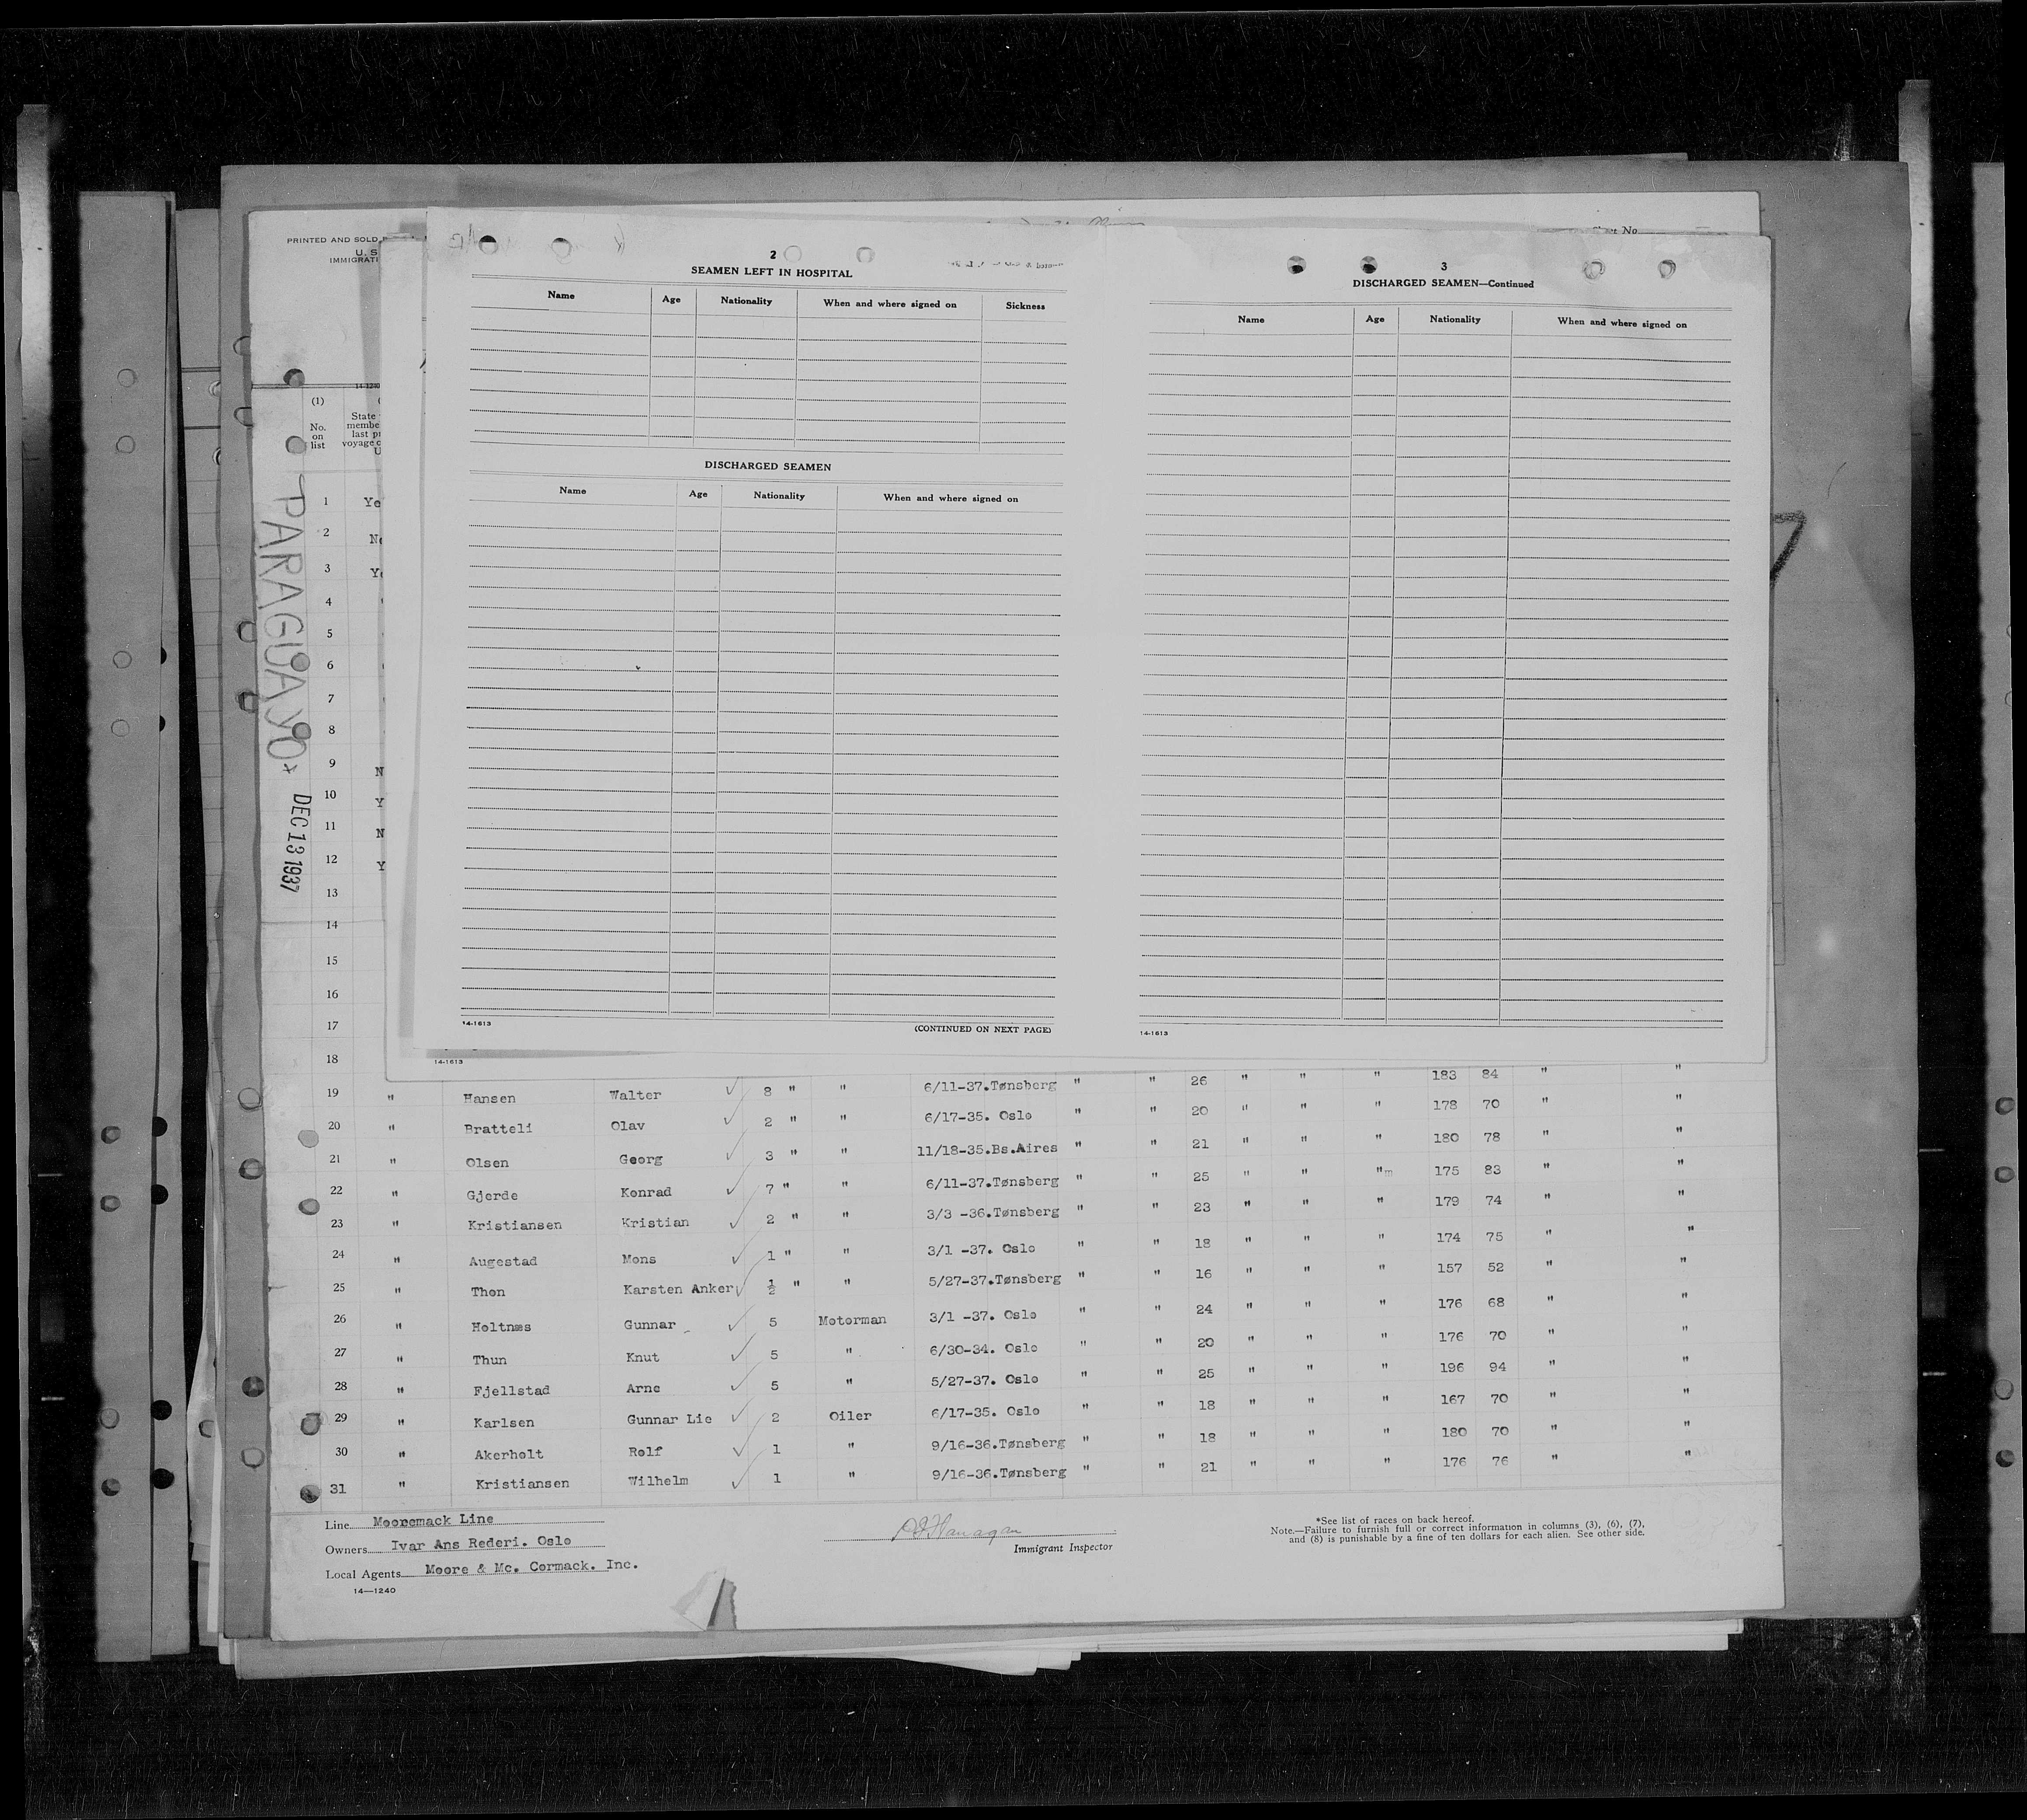 PRINTED AND SOLD
U. S
IMMIGRATI
14-1240
(1)
No. on list
State
membe
last pr
voyage o
U
PARAGUAYO
DEC 13 1937
1 Ye
2 No
3 Ye
4
5
6
7
8
9 N
10 Y
11 N
12 Y
13
14
15
16
17
18
Sheet No.
2
SEAMEN LEFT IN HOSPITAL
Name Age Nationality When and where signed on Sickness
DISCHARGED SEAMEN
Name Age Nationality When and where signed on
14-1613 (CONTINUED ON NEXT PAGE)
14-1613
3
DISCHARGED SEAMEN—Continued
Name Age Nationality When and where signed on
14-1613
19 " Hansen Walter ✓ 8 " " 6/11-37.Tønsberg " " 26 " " " 183 84 " "
20 " Bratteli Olav ✓ 2 " " 6/17-35. Oslo " " 20 " " " 178 70 " "
21 " Olsen Georg ✓ 3 " " 11/18-35.Bs.Aires " " 21 " " " 180 78 " "
22 " Gjerde Konrad ✓ 7 " " 6/11-37.Tønsberg " " 25 " " "m 175 83 " "
23 " Kristiansen Kristian ✓ 2 " " 3/3 -36.Tønsberg " " 23 " " " 179 74 " "
24 " Augestad Mons ✓ 1 " " 3/1 -37. Oslo " " 18 " " " 174 75 " "
25 " Thon Karsten Anker ✓ ½ " " 5/27-37.Tønsberg " " 16 " " " 157 52 " "
26 " Holtnæs Gunnar ✓ 5 Motorman 3/1 -37. Oslo " " 24 " " " 176 68 " "
27 " Thun Knut ✓ 5 " 6/30-34. Oslo " " 20 " " " 176 70 " "
28 " Fjellstad Arne ✓ 5 " 5/27-37. Oslo " " 25 " " " 196 94 " "
29 " Karlsen Gunnar Lie ✓ 2 Oiler 6/17-35. Oslo " " 18 " " " 167 70 " "
30 " Akerholt Rolf ✓ 1 " 9/16-36.Tønsberg " " 18 " " " 180 70 " "
31 " Kristiansen Wilhelm ✓ 1 " 9/16-36.Tønsberg " " 21 " " " 176 76 " "
Line Mooremack Line
Owners Ivar Ans Rederi. Oslo
Local Agents Moore & Mc. Cormack. Inc.
14—1240
Flanagan
Immigrant Inspector
*See list of races on back hereof.
Note.—Failure to furnish full or correct information in columns (3), (6), (7),
and (8) is punishable by a fine of ten dollars for each alien. See other side.